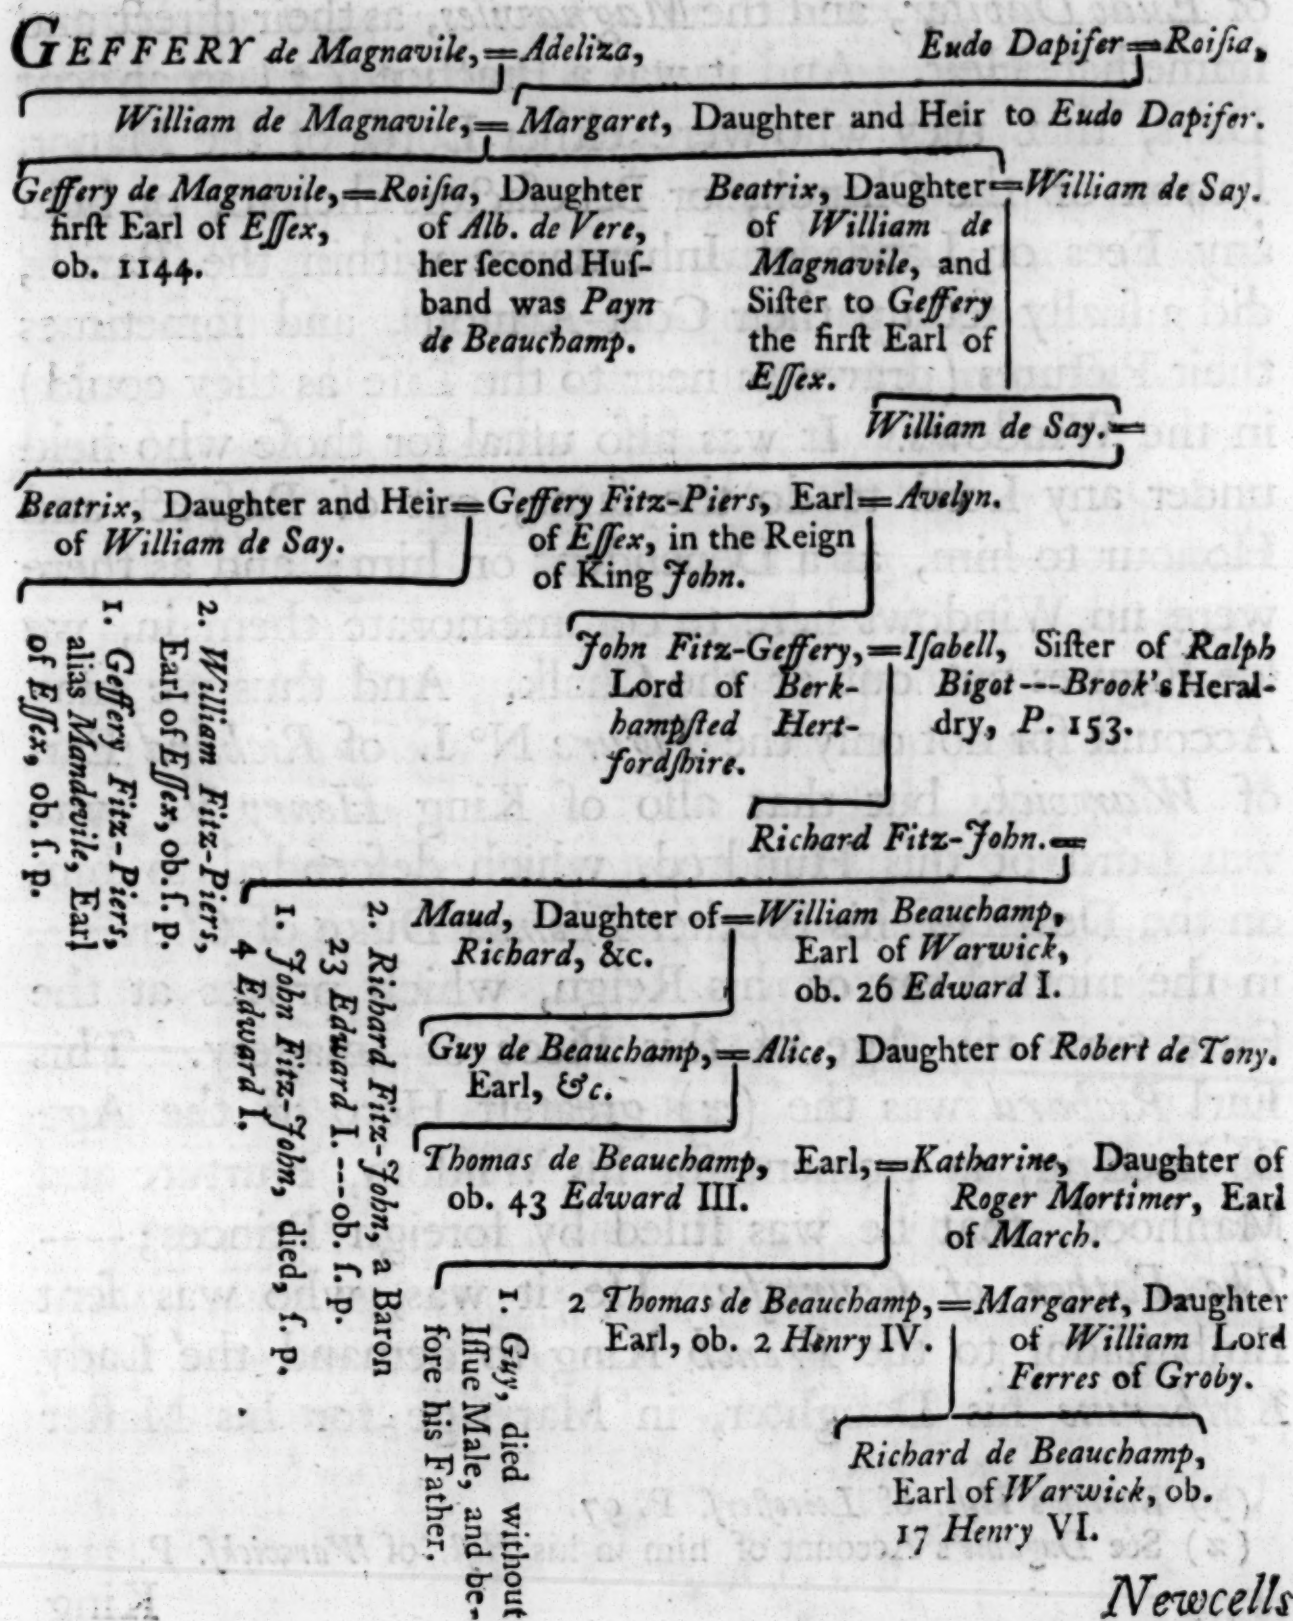 GEFFERY de Magnavile,=Adeliza, Eudo Dapifer=Roiſia,
William de Magnavile,=Margaret, Daughter and Heir to Eudo Dapifer.
Geffery de Magnavile,=Roiſia, Daughter
firſt Earl of Eſſex, of Alb. de Vere,
ob. 1144. her ſecond Huſ-
band was Payn
de Beauchamp.
Beatrix, Daughter=William de Say.
of William de
Magnavile, and
Siſter to Geffery
the firſt Earl of
Eſſex.
William de Say.=
Beatrix, Daughter and Heir=Geffery Fitz-Piers, Earl=Avelyn.
of William de Say. of Eſſex, in the Reign
of King John.
1. Geffery Fitz-Piers,
alias Mandevile, Earl
of Eſſex, ob. ſ. p.
2. William Fitz-Piers,
Earl of Eſſex, ob. ſ. p.
John Fitz-Geffery,=Iſabell, Siſter of Ralph
Lord of Berk- Bigot---Brook's Heral-
hampſted Hert- dry, P. 153.
fordſhire.
Richard Fitz-John.=
1. John Fitz-John, died, ſ. p.
4 Edward I.
2. Richard Fitz-John, a Baron
23 Edward I.---ob. ſ. p.
Maud, Daughter of=William Beauchamp,
Richard, &c. Earl of Warwick,
ob. 26 Edward I.
Guy de Beauchamp,=Alice, Daughter of Robert de Tony.
Earl, &c.
Thomas de Beauchamp, Earl,=Katharine, Daughter of
ob. 43 Edward III. Roger Mortimer, Earl
of March.
1. Guy, died without
Iſſue Male, and be-
fore his Father.
2 Thomas de Beauchamp,=Margaret, Daughter
Earl, ob. 2 Henry IV. of William Lord
Ferres of Groby.
Richard de Beauchamp,
Earl of Warwick, ob.
17 Henry VI.
Newcells